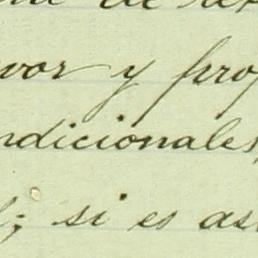 de
vor y pro
ndicionales,
; si es as